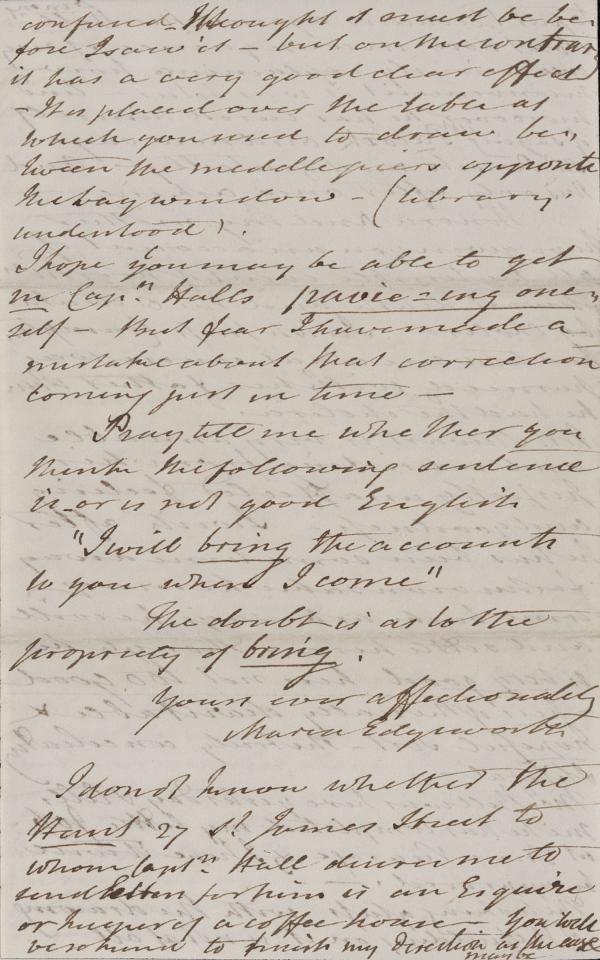 confused - I thought it must be be-
fore I saw it - but on the contrary
it has a very good clear effect
- It is placed over the table at
which you used to draw be-
tween the middle piers opposite
the bay window - (library,
understood).
I hope you may be able to get
in Capn. Halls pavie=ing one-
self - But fear I have made a
mistake about that correction
coming just in time -
Pray tell me whether you
think the following sentence
is - or is not good English
"I will bring the accounts
to you when I come"
The doubt is as to the
propriety of bring.
Yours ever affectionately
Maria Edgeworth
I do not know whether the
27 St. James Street to
whom Captn. Hall directs me to
send letters for him is an Esquire
or keeper of a coffee house - You will
be so kind to finish my direction as the case
may be